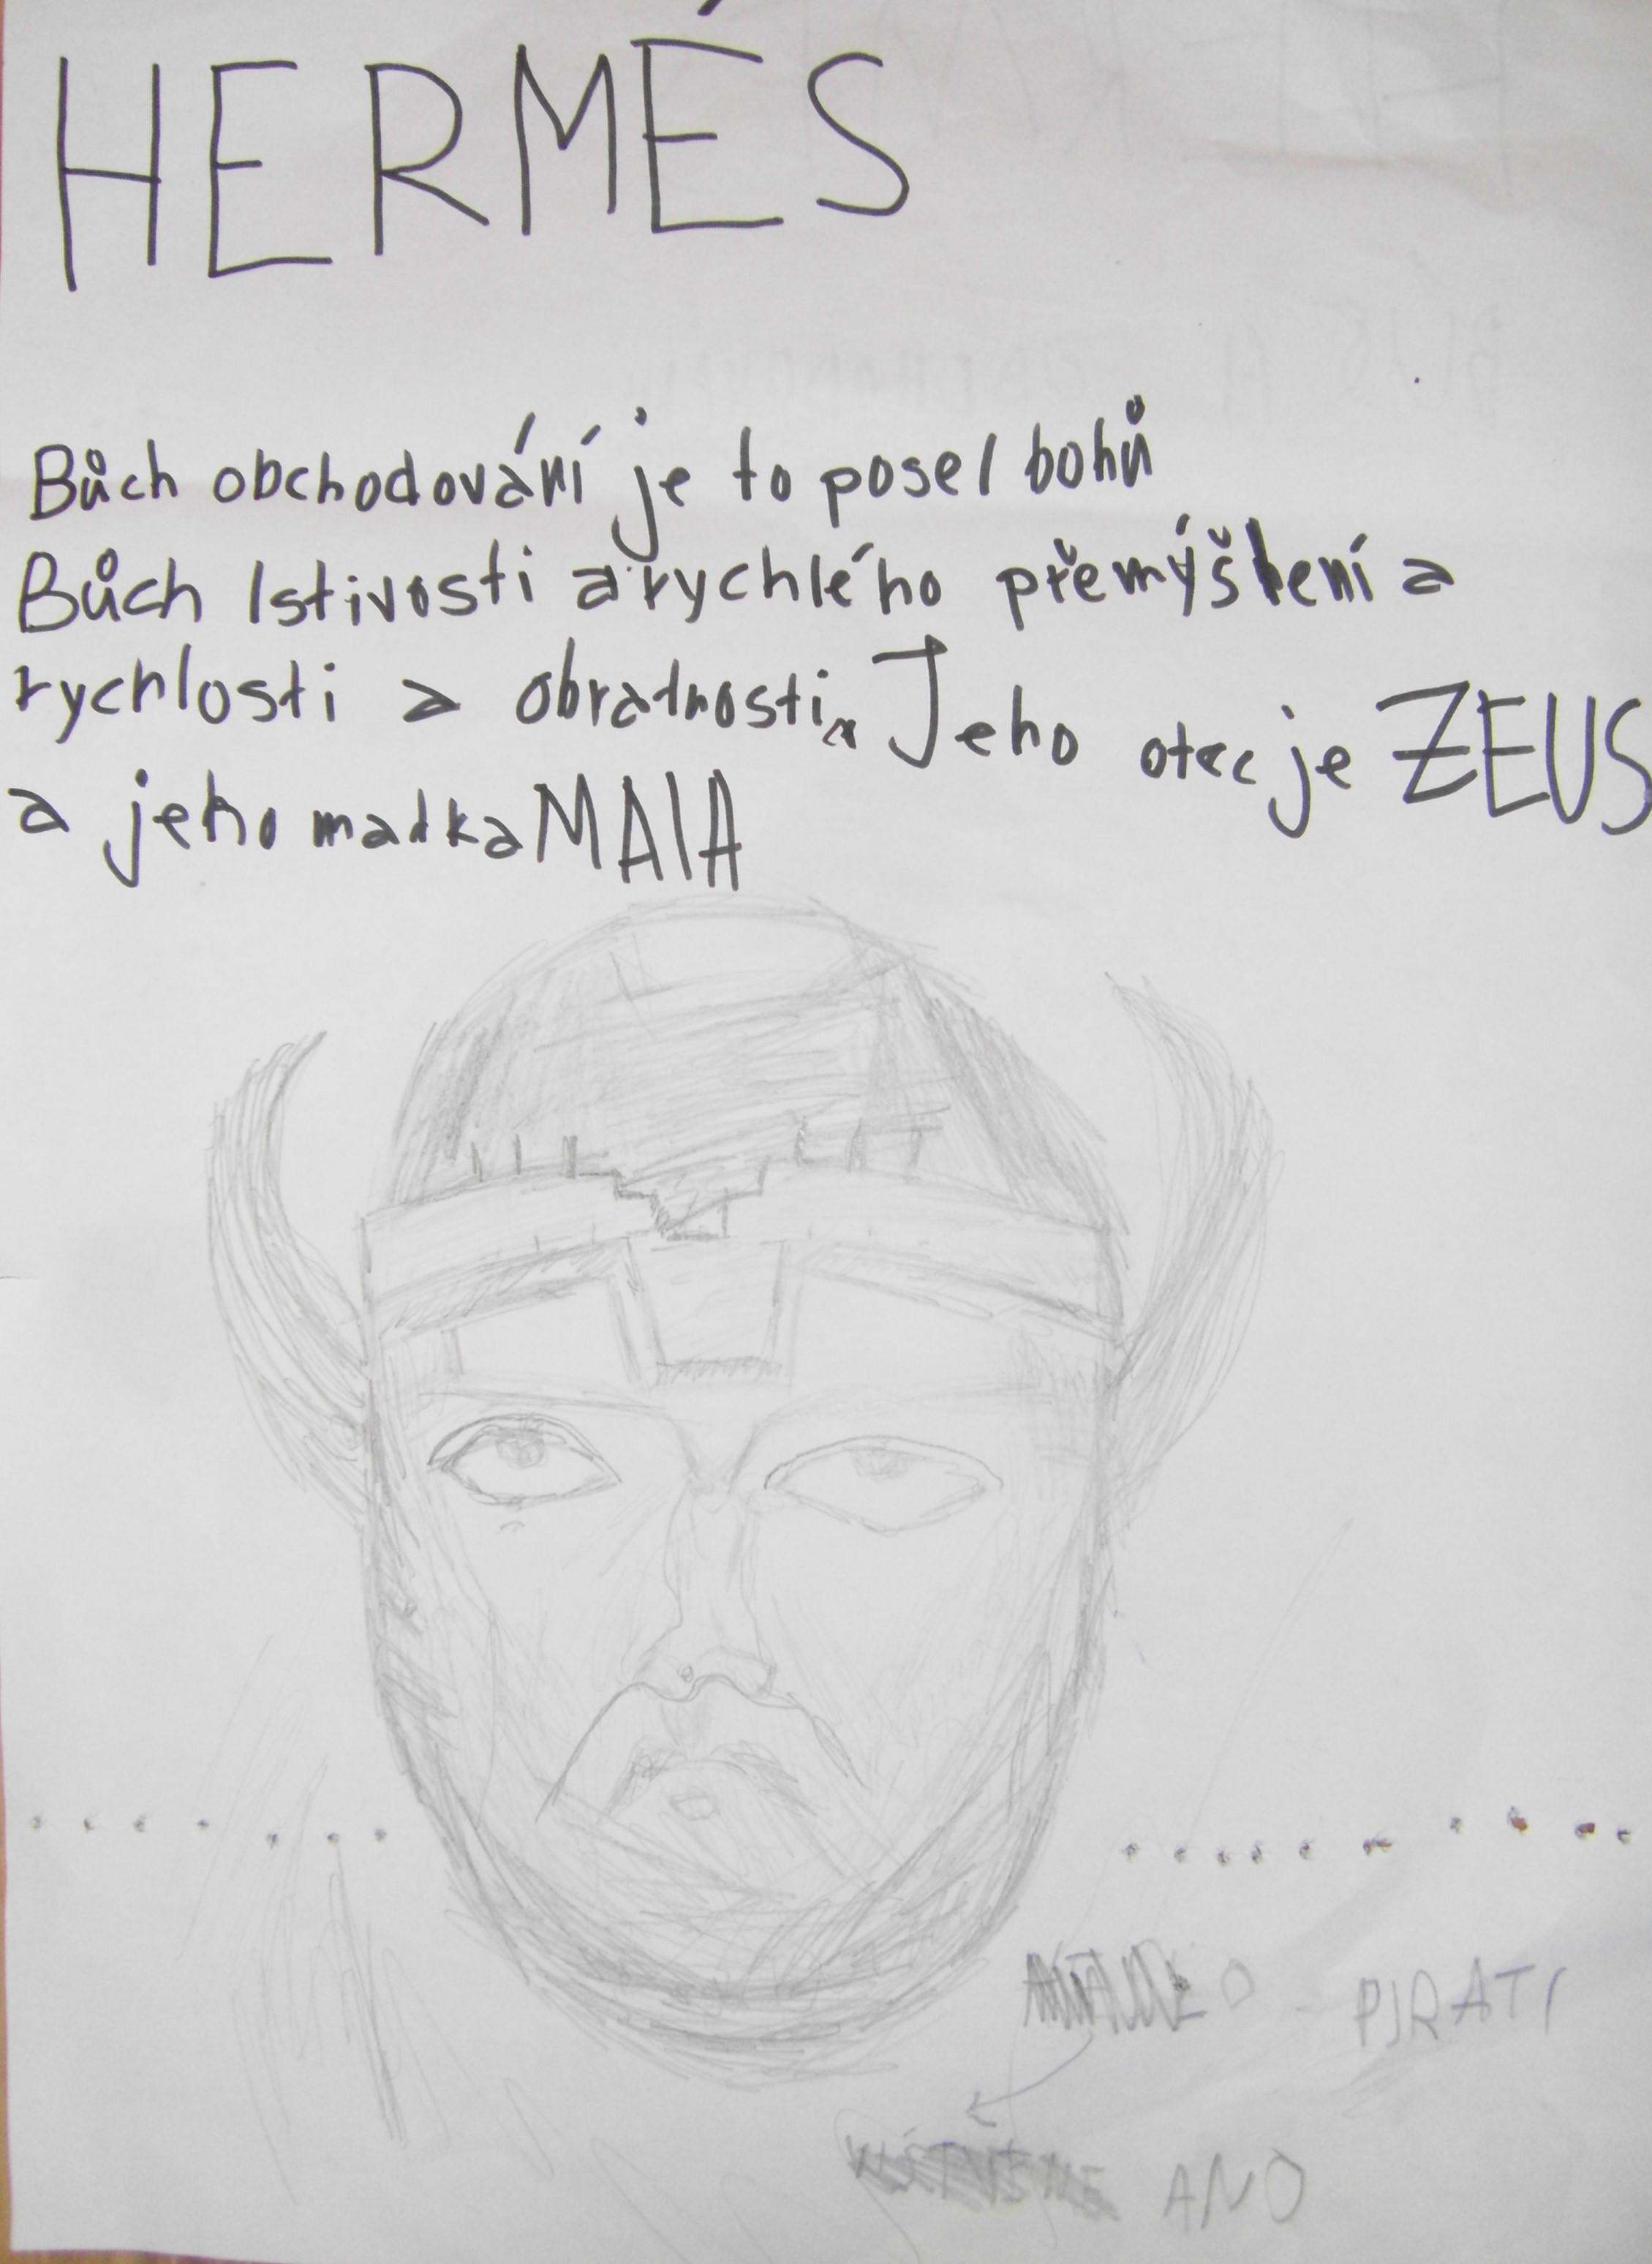 HERMÉS
Bůch obchodování je to posel bohů
Bůch lstivosti a rychlého přemýšlení a
rychlosti a obratnosti. Jeho otec je ZEUS
a jeho matka MAIA
O - PIRATI
ANO